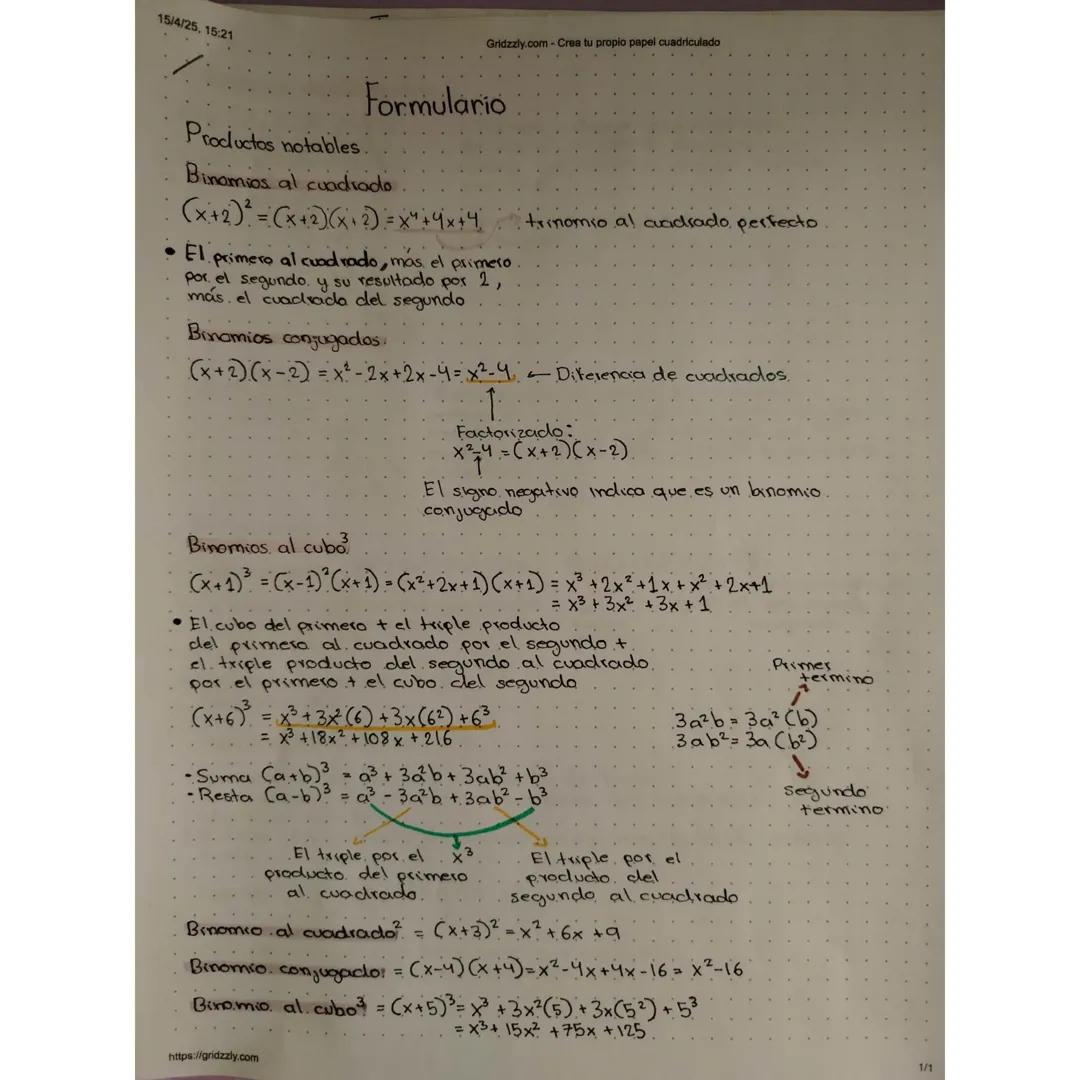 15/4/25, 15:21
Gridzzly.com - Crea tu propio papel cuadriculado
Formulario
Productos notables.
Binomios al cuadrado
(x+2)² = (x+2)(x+2) = x⁴+4x+4 trinomio al cuadrado perfecto
• El primero al cuadrado, más el primero
por el segundo y su resultado por 2,
más el cuadrado del segundo
Binomios conjugados.
(x+2)(x-2) = x²-2x+2x-4 = x²-4 ← Diferencia de cuadrados.
↑
Factorizado:
x²-4 = (x+2)(x-2)
↑
El signo negativo indica que es un binomio
conjugado
Binomios al cubo³
(x+1)³ = (x-1)²(x+1) = (x²+2x+1)(x+1) = x³+2x²+1x+x²+2x+1
= x³+3x²+3x+1
• El cubo del primero + el triple producto
del primero al cuadrado por el segundo +
el triple producto del segundo al cuadrado
por el primero + el cubo del segundo
Primer
termino
(x+6)³ = x³+3x²(6)+3x(6²)+6³
= x³+18x²+108x+216
3a²b = 3a²(b)
3ab² = 3a(b²)
segundo
termino
- Suma (a+b)³ = a³+3a²b+3ab²+b³
- Resta (a-b)³ = a³-3a²b+3ab²-b³
El triple por el
producto del primero
al cuadrado
x³
El triple por el
producto del
segundo al cuadrado
Binomio al cuadrado² = (x+3)² = x²+6x+9
Binomio conjugado: = (x-4)(x+4) = x²-4x+4x-16 = x²-16
Binomio al cubo³ = (x+5)³ = x³+3x²(5)+3x(5²)+5³
= x³+15x²+75x+125
https://gridzzly.com
1/1